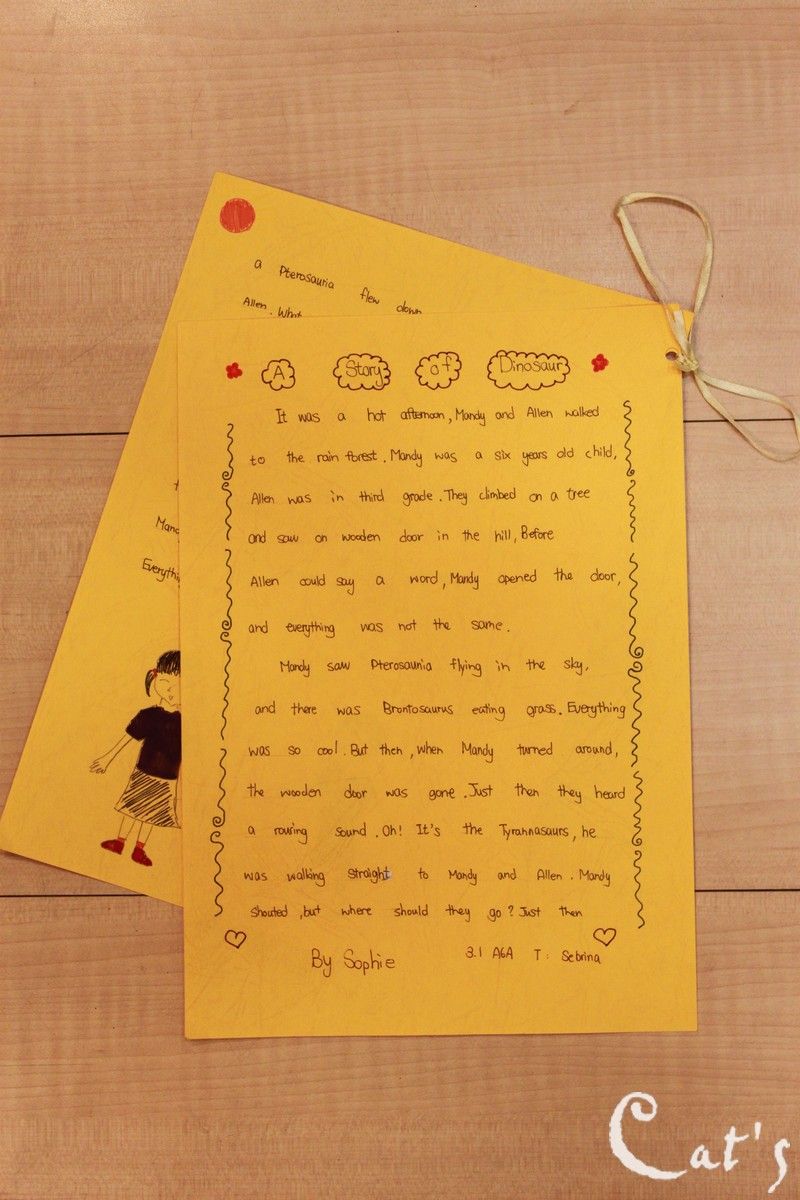 a Pterosauria flew down
Allen. What
Mand
Everythi
A Story of Dinosaur
It was a hot afternoon, Mandy and Allen walked
to the rain forest. Mandy was a six years old child,
Allen was in third grade. They climbed on a tree
and saw on wooden door in the hill, Before
Allen could say a word, Mandy opened the door,
and everything was not the same.
Mandy saw Pterosaunia flying in the sky,
and there was Brontosaurus eating grass. Everything
was so cool. But then, when Mandy turned around,
the wooden door was gone. Just then they heard
a rouring sound. Oh! It's the Tyrannasaurs, he
was walking straight to Mandy and Allen. Mandy
shouted, but where should they go? Just then
By Sophie 3.1 A6A T: Sebrina
Cat's